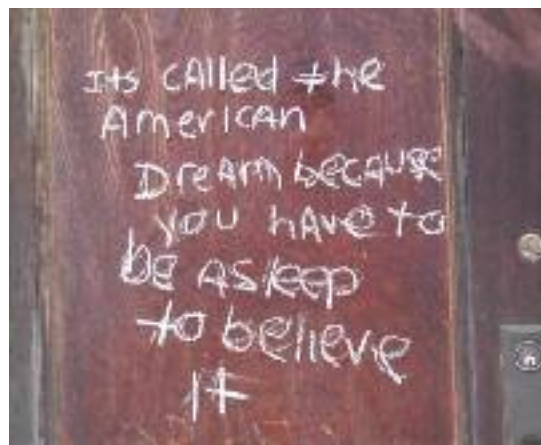 Its cAlled the
AmericAn
DreAm becAuse
you hAve to
be ASleep
to believe
It